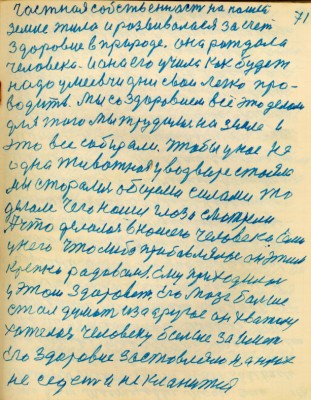 частная собственность на нашей
71
земле жила и развивалася за счет
Здоровие в природе. она рождала
человека. и она его учила как будет
надо умеючи дни свои легко про-
водить. Мы со Здоровием всё это делали
для того мы трудились на земле и
это все собирали. Чтобы у нас не
одна животная у водваре стояла
мы старалися общеми силами то
делали чего наши глаза смотрели
А что делалося в новего человека. Если
у него что либо прибавлялося он этим
крепко радовался. Ему приходилося
у этом здоровет. Его глаза больше
стал думать за другое он
хотелося человеку больше за земли
Его здоровие заставляло на них
не сесть и не кланится